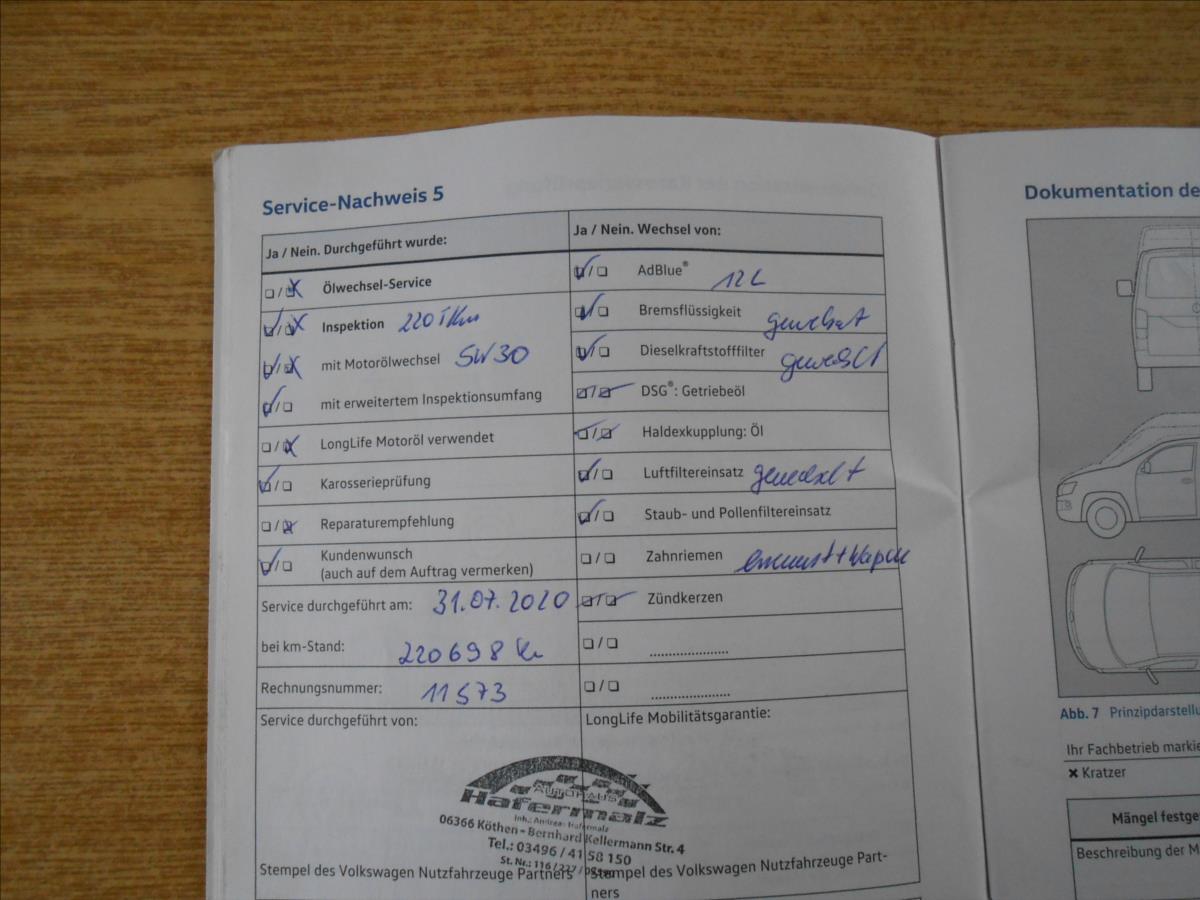 Service-Nachweis 5
Ja / Nein. Durchgeführt wurde:
Ölwechsel-Service
Inspektion 220 TKm
mit Motorölwechsel 5W30
mit erweitertem Inspektionsumfang
LongLife Motoröl verwendet
Karosserieprüfung
Reparaturempfehlung
Kundenwunsch
(auch auf dem Auftrag vermerken)
Service durchgeführt am: 31.07.2020
bei km-Stand: 220698 Km
Rechnungsnummer: 11573
Service durchgeführt von:
Ja / Nein. Wechsel von:
AdBlue® 12 L
Bremsflüssigkeit
Dieselkraftstofffilter
DSG®: Getriebeöl
Haldexkupplung: Öl
Luftfiltereinsatz
Staub- und Pollenfiltereinsatz
Zahnriemen
Zündkerzen
....................
....................
LongLife Mobilitätsgarantie:
AUTOHAUS
Hafermalz
Inh.: Andreas Hafermalz
06366 Köthen - Bernhard Kellermann Str. 4
Tel.: 03496 / 41 58 150
St. Nr.: 116 / 227 /
Stempel des Volkswagen Nutzfahrzeuge Partners
Stempel des Volkswagen Nutzfahrzeuge Part-
ners
Dokumentation de
Abb. 7 Prinzipdarstellu
Ihr Fachbetrieb markie
✖ Kratzer
Mängel festge
Beschreibung der M